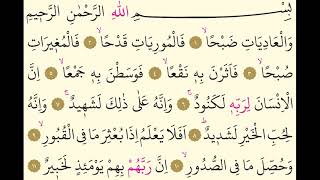 بِسْمِ اللّٰهِ الرَّحْمٰنِ الرَّحٖيمِ
وَالْعَادِيَاتِ ضَبْحًا ﴿١﴾ فَالْمُورِيَاتِ قَدْحًا ﴿٢﴾ فَالْمُغٖيرَاتِ
صُبْحًا ﴿٣﴾ فَاَثَرْنَ بِهٖ نَقْعًا ﴿٤﴾ فَوَسَطْنَ بِهٖ جَمْعًا ﴿٥﴾ اِنَّ
الْاِنْسَانَ لِرَبِّهٖ لَكَنُودٌ ﴿٦﴾ وَاِنَّهُ عَلٰى ذٰلِكَ لَشَهٖيدٌ ﴿٧﴾ وَاِنَّهُ
لِحُبِّ الْخَيْرِ لَشَدٖيدٌ ﴿٨﴾ اَفَلَا يَعْلَمُ اِذَا بُعْثِرَ مَا فِى الْقُبُورِ ﴿٩﴾
وَحُصِّلَ مَا فِى الصُّدُورِ ﴿١٠﴾ اِنَّ رَبَّهُمْ بِهِمْ يَوْمَئِذٍ لَخَبٖيرٌ ﴿١١﴾